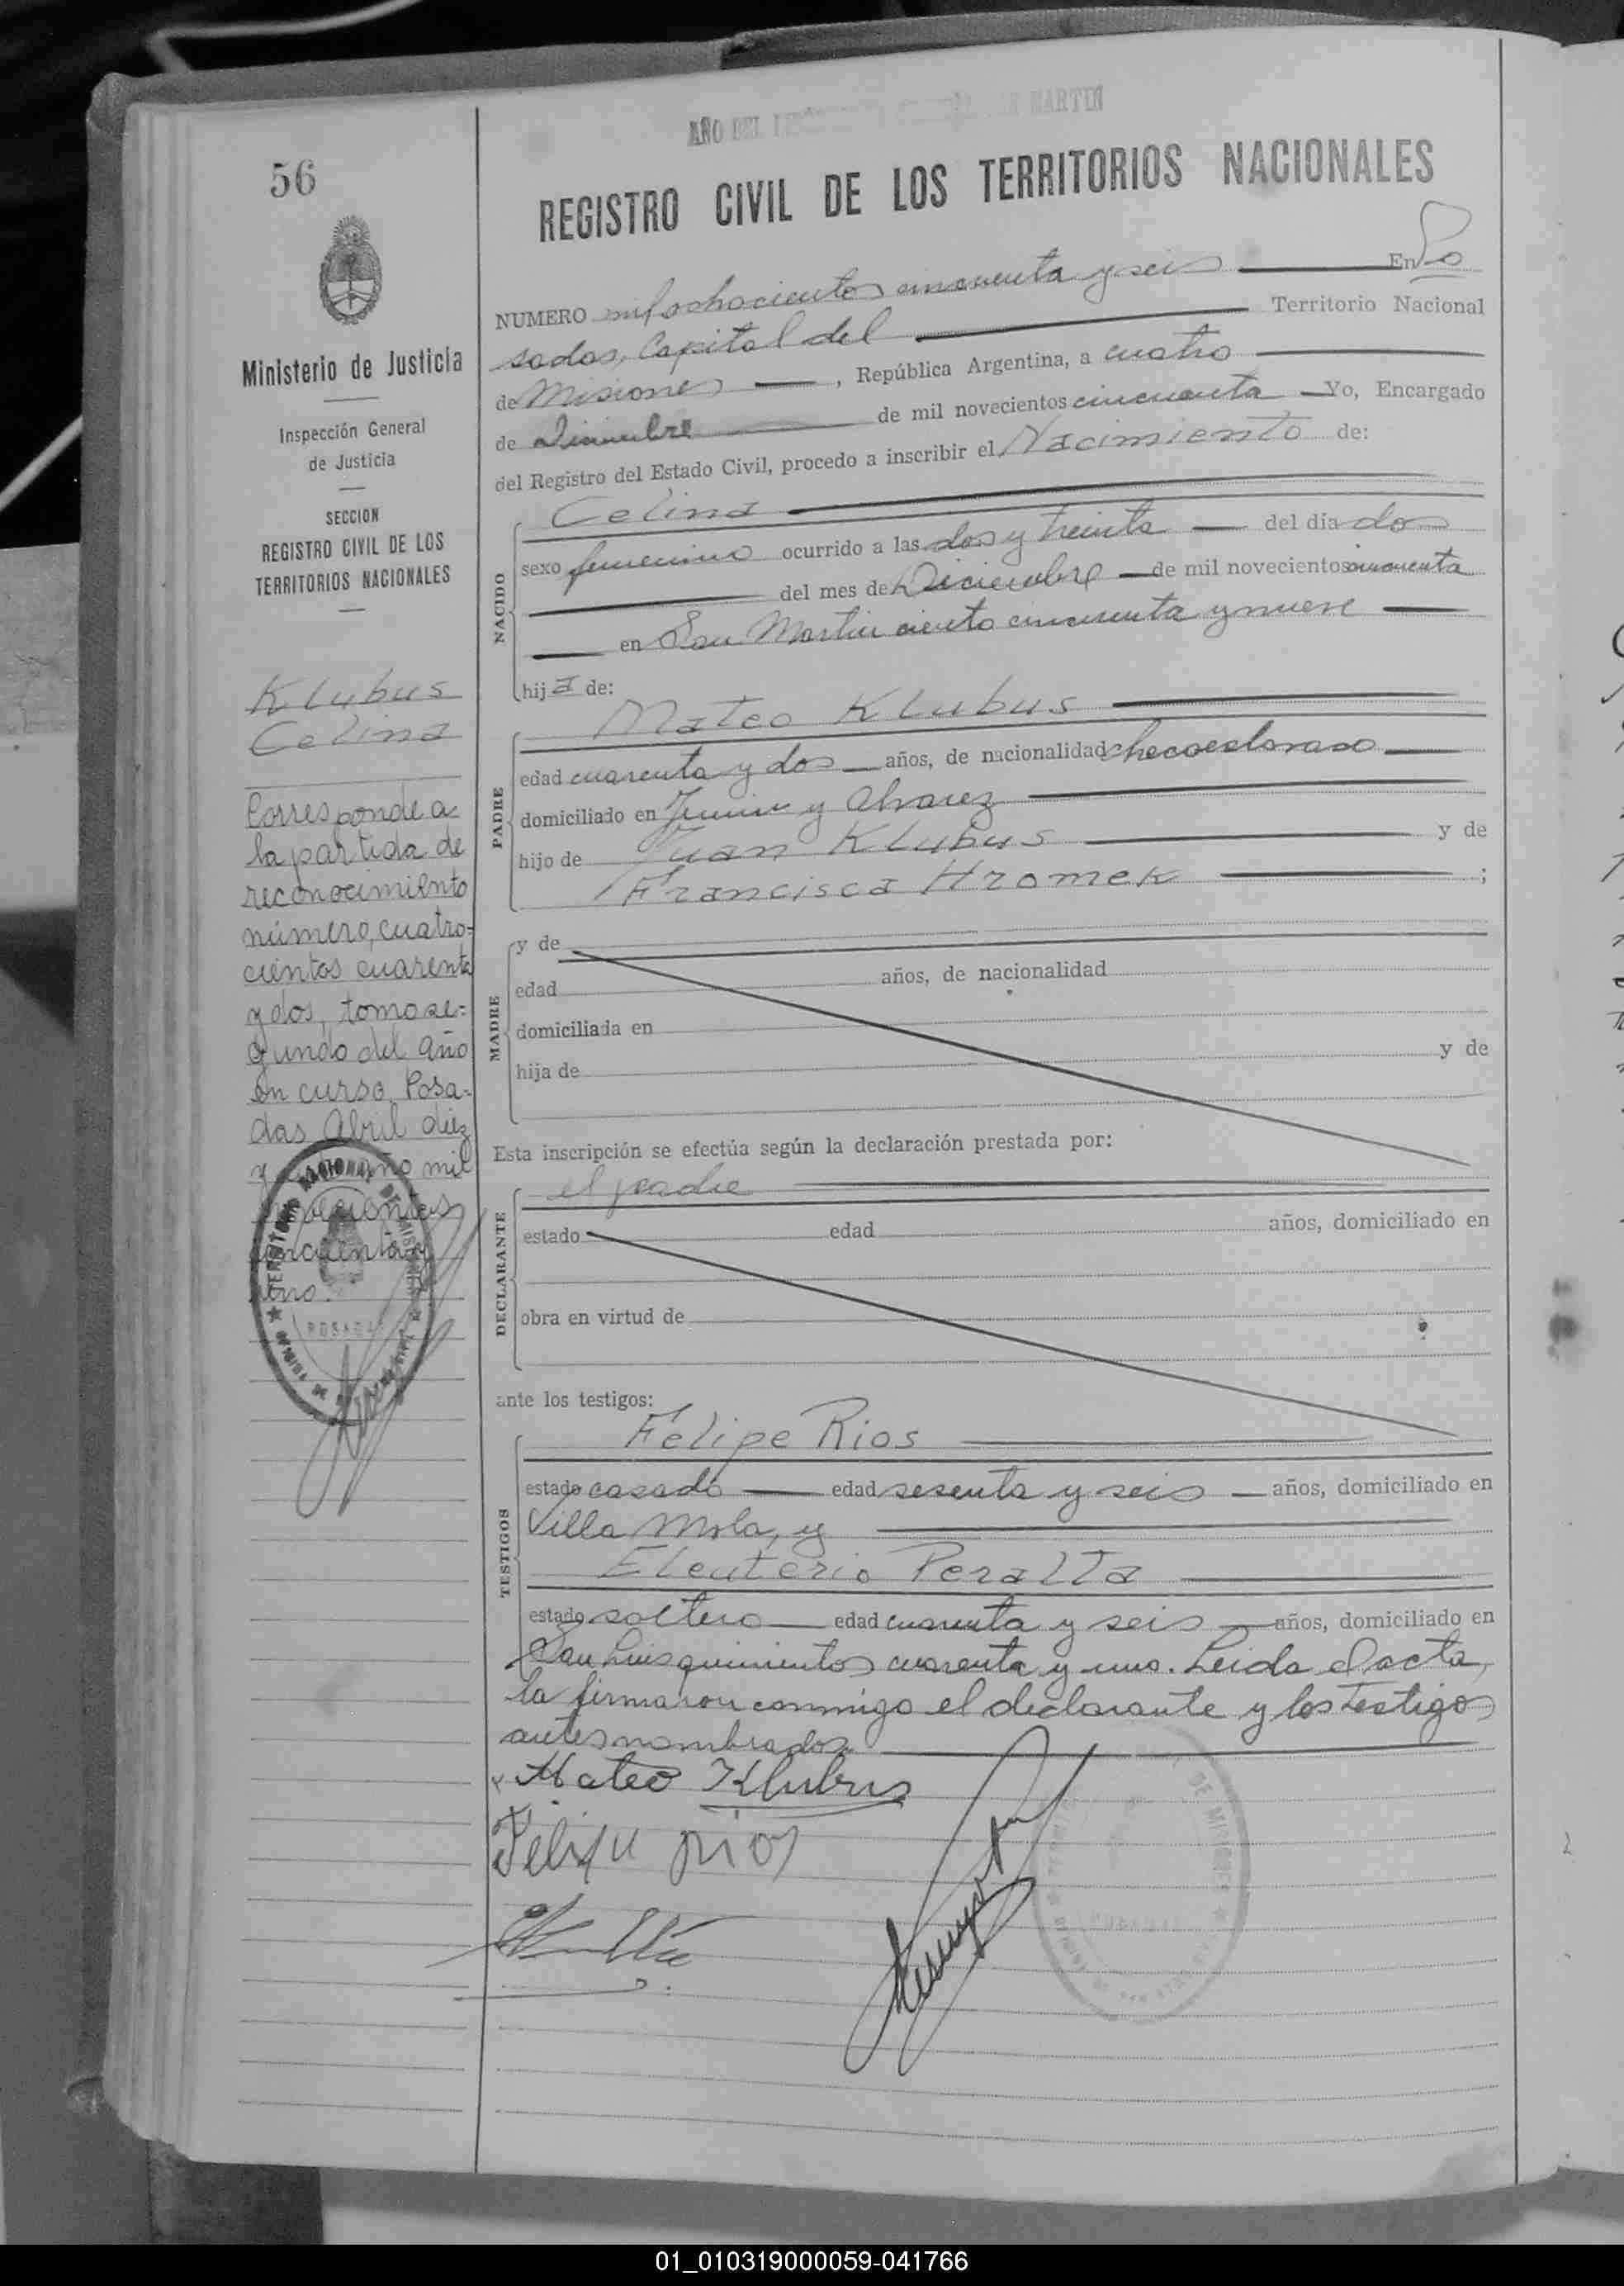 AÑO DEL MARTIN
56
REGISTRO CIVIL DE LOS TERRITORIOS NACIONALES
Ministerio de Justicia
Inspección General
de Justicia
SECCION
REGISTRO CIVIL DE LOS
TERRITORIOS NACIONALES
Klubus
Celina
Corresponde a
la partida de
reconocimiento
número, cuatro=
cientos cuarenta
y dos, tomo se=
gundo del año
en curso. Posa-
das Abril diez
y año mil
novecientos
cincuenta y
uno.
TERRITORIO NACIONAL DE MISIONES
POSADAS
NUMERO mil ochocientos cincuenta y seis En Po
sadas, Capital del Territorio Nacional
de Misiones, República Argentina, a cuatro
de Diciembre de mil novecientos cincuenta Yo, Encargado
del Registro del Estado Civil, procedo a inscribir el Nacimiento de:
NACIDO
Celina
sexo femenino ocurrido a las dos y treinta del día dos
del mes de Diciembre de mil novecientos cincuenta
en San Martin ciento cincuenta y nueve
hija de:
PADRE
Mateo Klubus
edad cuarenta y dos años, de nacionalidad checoeslovaco
domiciliado en Junin y Alvarez
hijo de Juan Klubus y de
Francisca Hromek;
MADRE
y de
edad años, de nacionalidad
domiciliada en
hija de y de
Esta inscripción se efectúa según la declaración prestada por:
DECLARANTE
el padre
estado edad años, domiciliado en
obra en virtud de
ante los testigos:
TESTIGOS
Felipe Rios
estado casado edad sesenta y seis años, domiciliado en
Villa Mola, y
Eleuterio Peralta
estado soltero edad cuarenta y seis años, domiciliado en
San Luis quinientos cuarenta y uno. Leida el acta,
la firmaron conmigo el declarante y los testigos
antes nombrados.
Mateo Klubus
Felipe rios
DE MISIONES
POSADAS
01_010319000059-041766